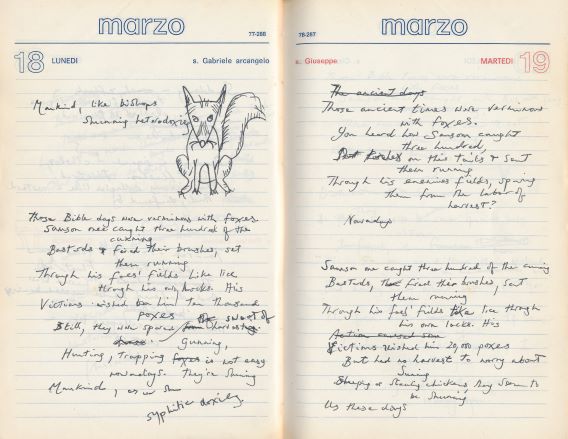 marzo
77-288
18 LUNEDI
s. Gabriele arcangelo
Mankind, like bishops
Shunning heterodoxies
Those Bible days were verminous with foxes
Samson once caught three hundred of the
cunning
Bastards & fired their brushes, set
them running
Through his foes' fields like lice
through his own locks. His
Victims wished him ten thousand
poxes
Still, they were spared sweat of
harvesting.
Gunning,
Hunting, Trapping foxes is not easy
nowadays. They're shunning
Mankind, as we shun
syphilitic doxies.
marzo
78-287
s. Giuseppe
MARTEDI 19
The ancient days
Those ancient times were verminous
with foxes.
You heard how Samson caught
three hundred,
on their tails & sent
them running
Through his enemies fields, sparing
them from the labor of
harvest?
Nowadays
Samson once caught three hundred of the cunning
Bastards, fired their brushes, sent
them running
Through his foes' fields like lice through
his own locks. His
Victims wished him 20,000 poxes
But had no harvest to worry about
Seeing
or chickens, they seem to
be shunning
Us these days